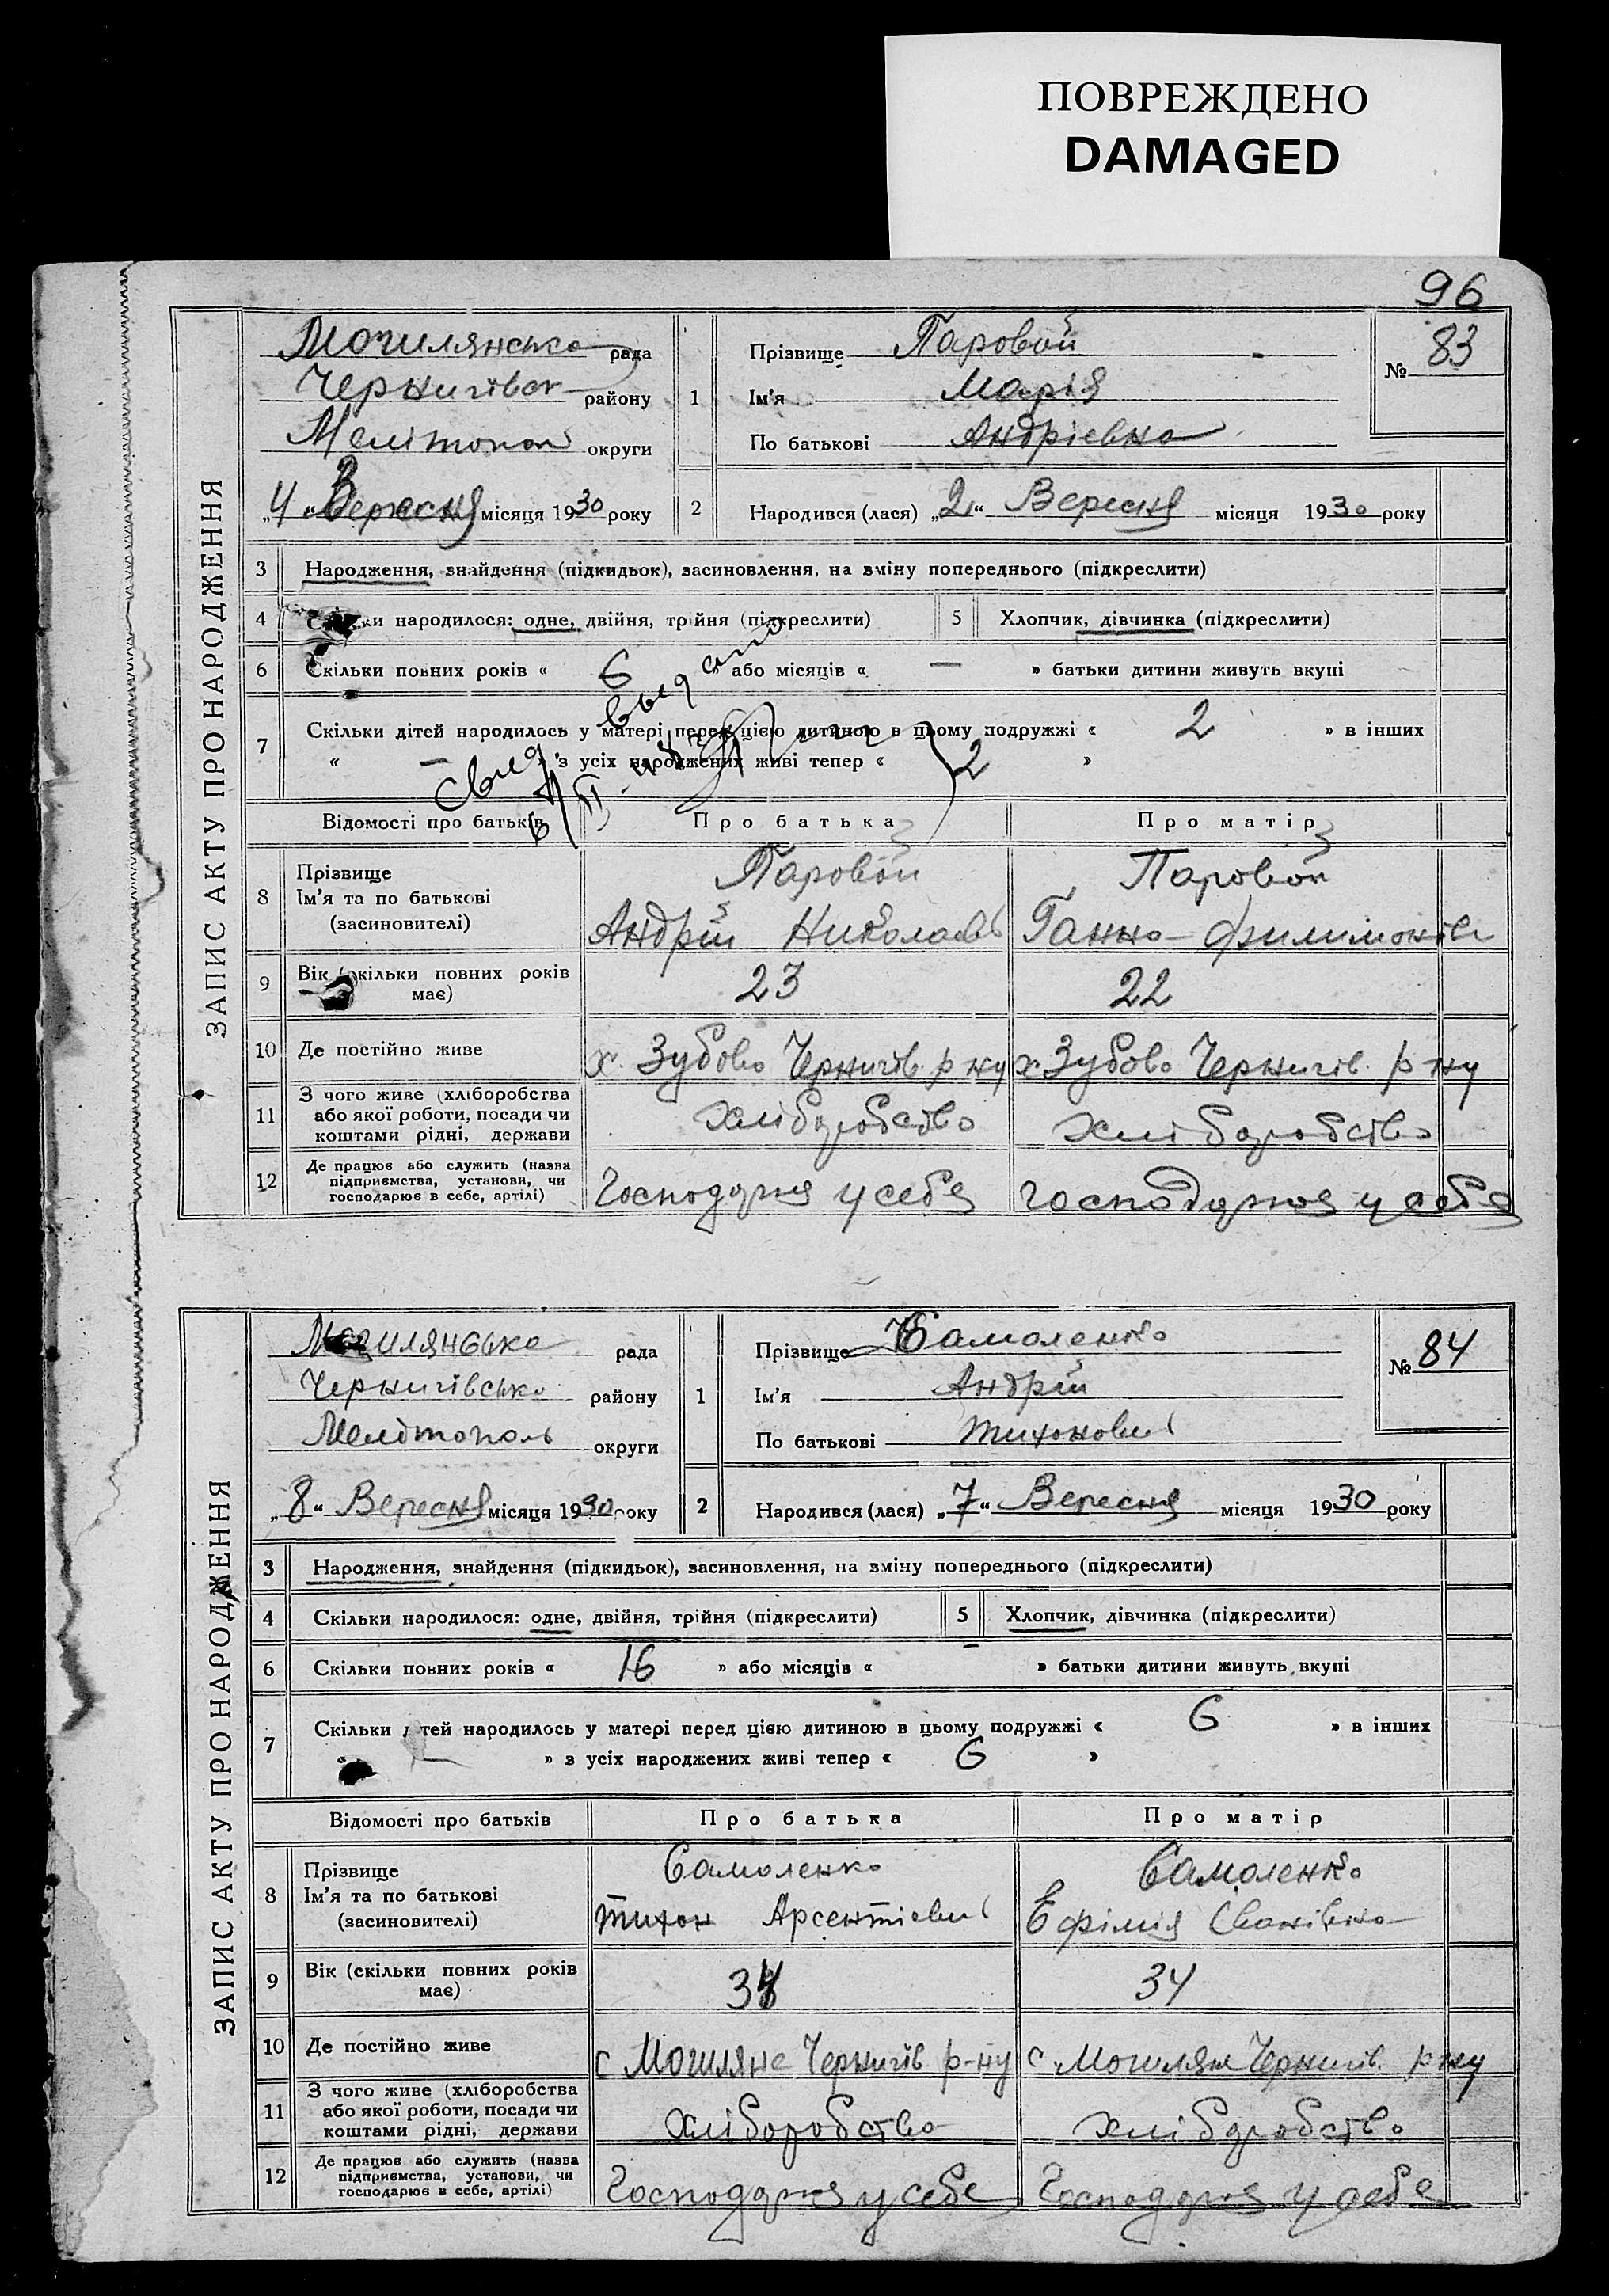 ПОВРЕЖДЕНО
DAMAGED
96
ЗАПИС АКТУ ПРО НАРОДЖЕННЯ
Могилянська рада
Чернигівск району
Мелітопол округи
„4“ Вересня місяця 1930 року
1 Прізвище Паровой
Ім'я Марія
По батькові Андріевна
№ 83
2 Народився (лася) „2“ Вересня місяця 1930 року
3 Народження, знайдення (підкидьок), засиновлення, на зміну попереднього (підкреслити)
4 Скільки народилося: одне, двійня, трійня (підкреслити) 5 Хлопчик, дівчинка (підкреслити)
6 Скільки повних років « 6 » або місяців « — » батьки дитини живуть вкупі
7 Скільки дітей народилось у матері перед цією дитиною в цьому подружжі « 2 » в інших
« — » з усіх народжених живі тепер « 2 »
свид выдано
Відомості про батьків Про батька Про матір
8 Прізвище Ім'я та по батькові (засиновителі) Паровой Паровой
Андрій Николаев Ганна Филимонівн
9 Вік (скільки повних років має) 23 22
10 Де постійно живе х. Зубово Чернигів. р ну х Зубово Чернигів. р ну
11 З чого живе (хліборобства або якої роботи, посади чи коштами рідні, держави Хліборобство Хліборобство
12 Де працює або служить (назва підприємства, установи, чи господарює в себе, артілі) Господарня у себя Господарня у себя
ЗАПИС АКТУ ПРО НАРОДЖЕННЯ
Могилянська рада
Чернигівська району
Мелітополь округи
„8“ Вересня місяця 1930 року
1 Прізвище Самоленко
Ім'я Андрій
По батькові Тихонович
№ 84
2 Народився (лася) „7“ Вересня місяця 1930 року
3 Народження, знайдення (підкидьок), засиновлення, на зміну попереднього (підкреслити)
4 Скільки народилося: одне, двійня, трійня (підкреслити) 5 Хлопчик, дівчинка (підкреслити)
6 Скільки повних років « 16 » або місяців « — » батьки дитини живуть вкупі
7 Скільки дітей народилось у матері перед цією дитиною в цьому подружжі « 6 » в інших
« » з усіх народжених живі тепер « 6 »
Відомості про батьків Про батька Про матір
8 Прізвище Ім'я та по батькові (засиновителі) Самоленко Самоленко
Тихон Арсентієвич Ефімія Іванівна
9 Вік (скільки повних років має) 34
10 Де постійно живе с Могиляне Чернигів р-ну с Могиляне Чернигів. р ну
11 З чого живе (хліборобства або якої роботи, посади чи коштами рідні, держави Хліборобство Хліборобство
12 Де працює або служить (назва підприємства, установи, чи господарює в себе, артілі) Господарня у себе Господарня у себе